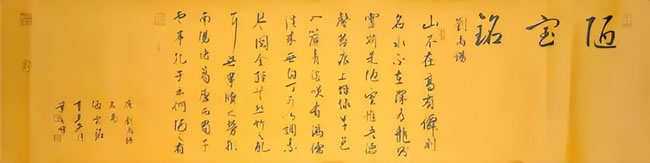 陋室銘
劉禹錫
山不在高有僊則
名水不在深有龍則
靈斯是陋室惟吾德
馨苔痕上階綠草色
入簾青談笑有鴻儒
往來無白丁可以調素
琴閱金經無絲竹之亂
耳無案牘之勞形
南陽諸葛廬西蜀子
雲亭孔子云何陋之有
唐劉禹錫
陋室銘